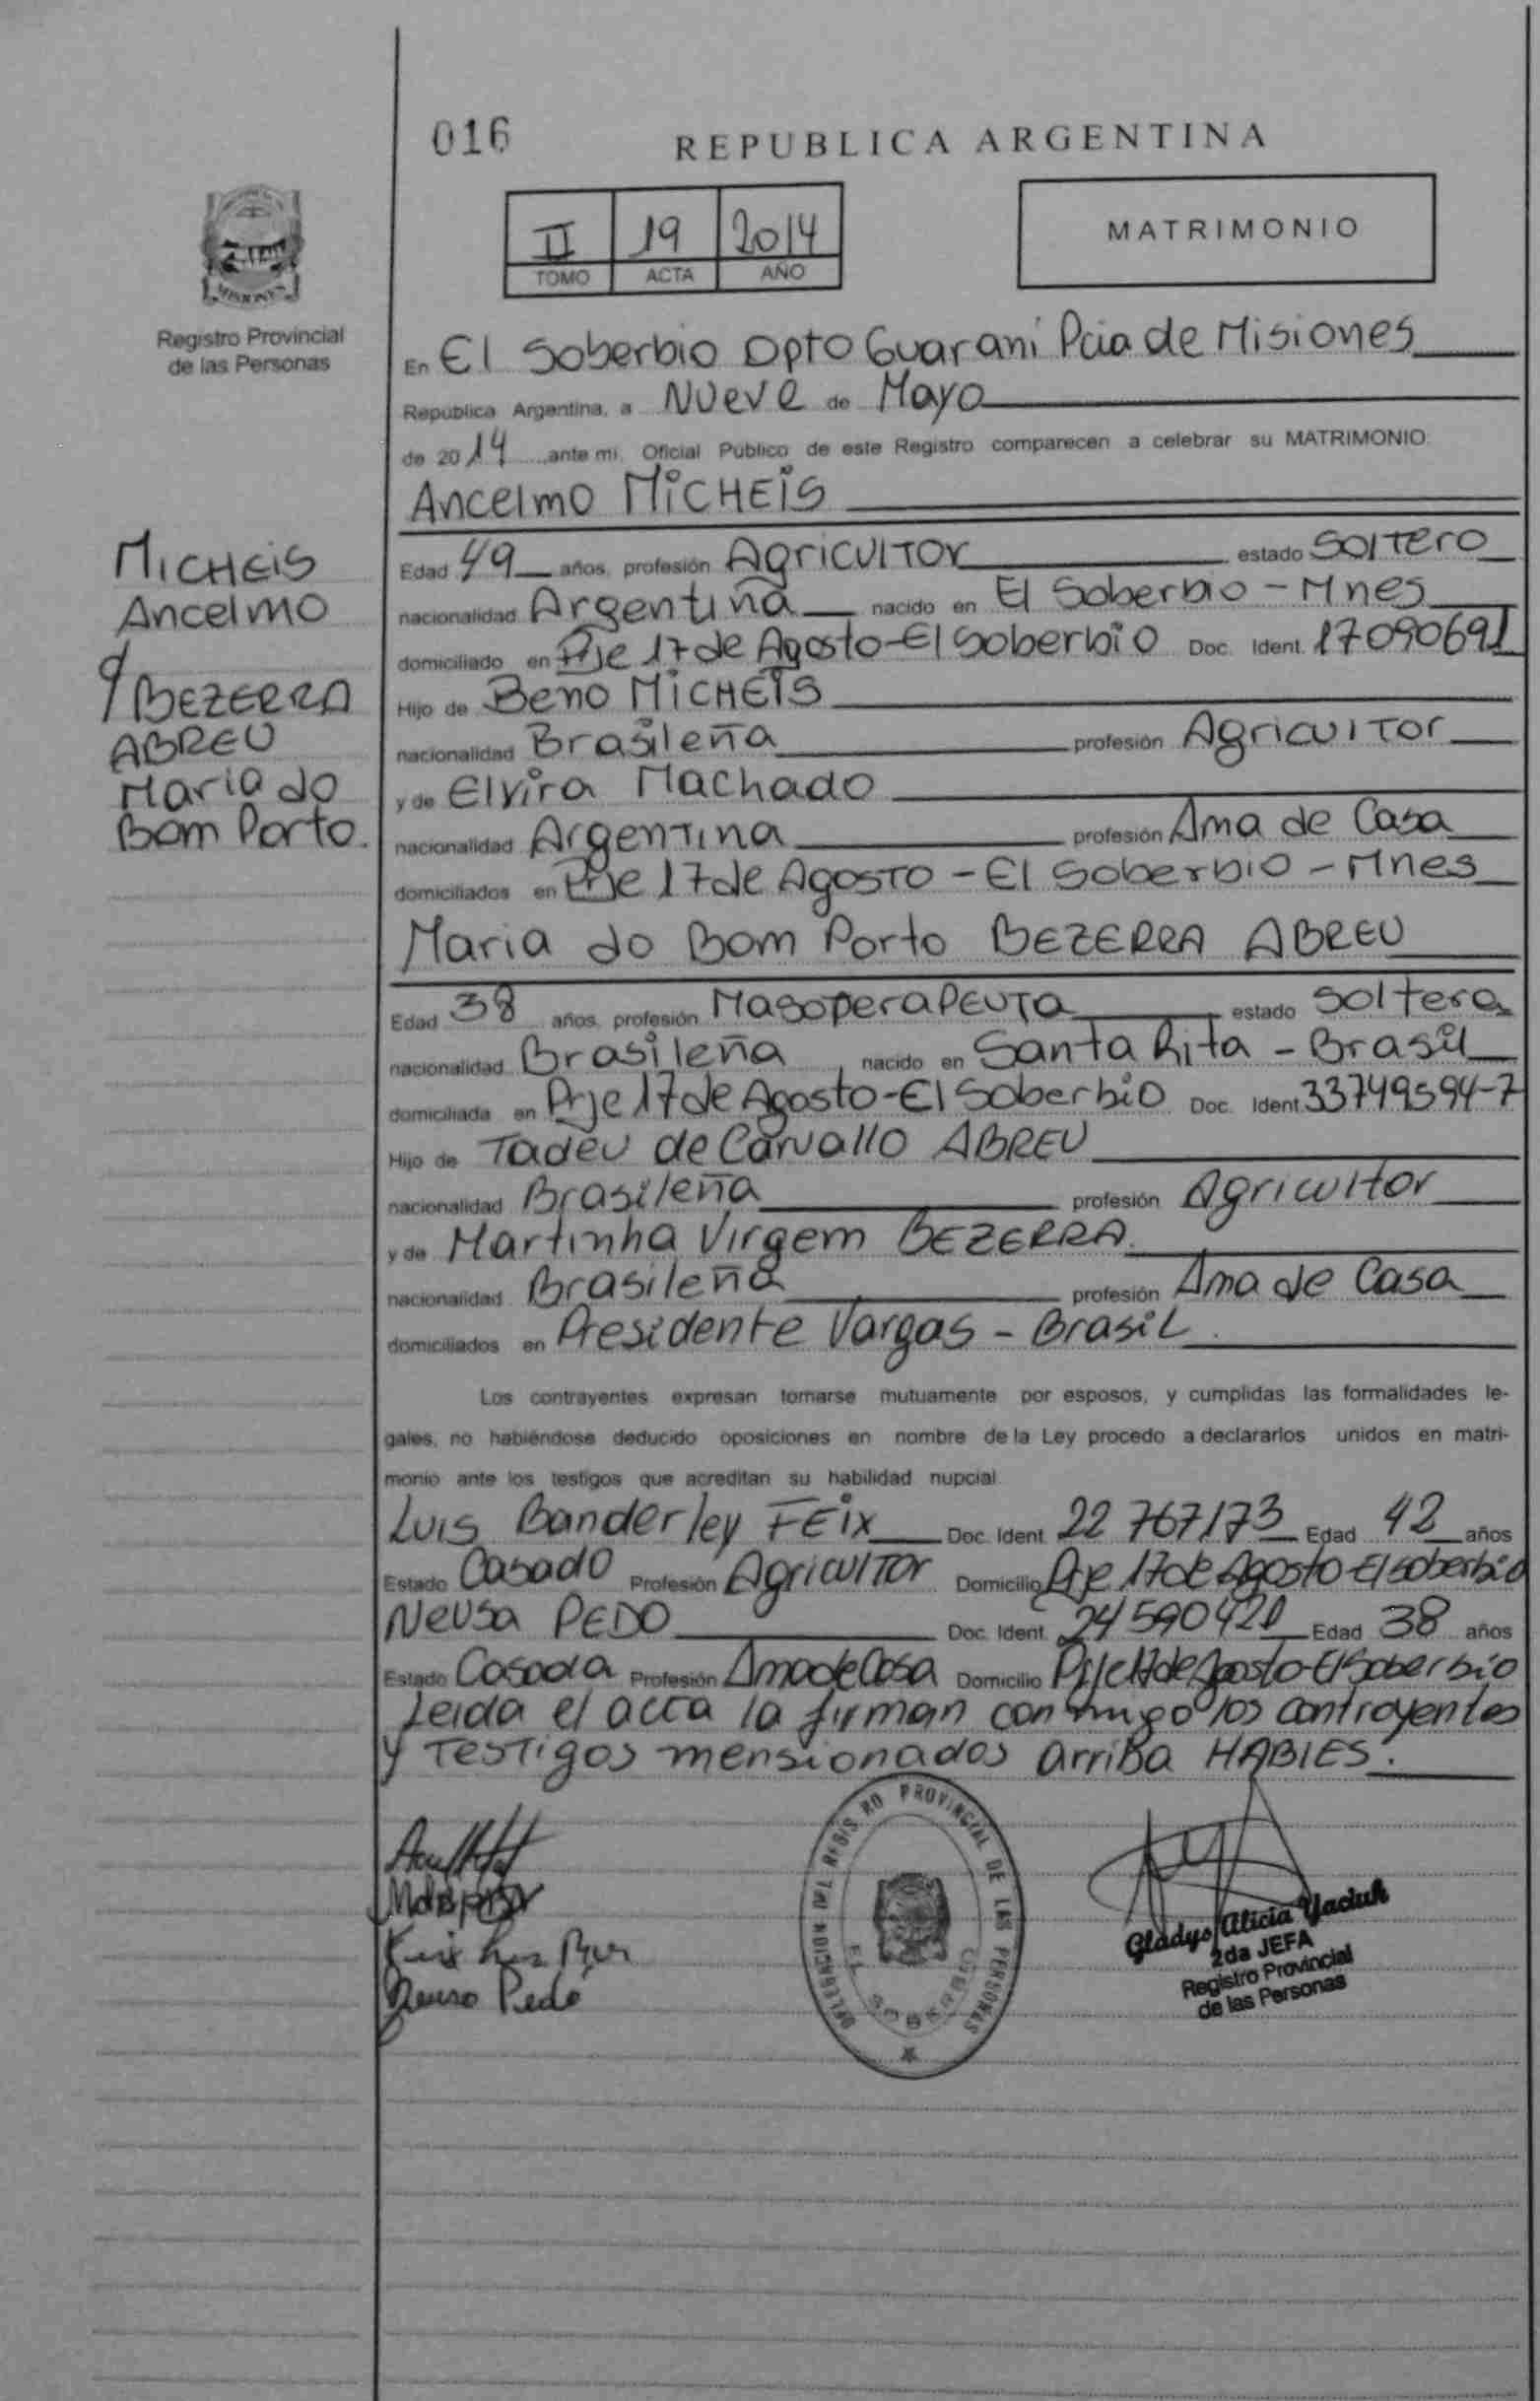 016
REPUBLICA ARGENTINA
II 19 2014
TOMO ACTA AÑO
MATRIMONIO
MISIONES
Registro Provincial
de las Personas
En El Soberbio Dpto Guarani Pcia de Misiones
Republica Argentina, a Nueve de Mayo
de 2014 ,ante mi, Oficial Público de este Registro comparecen a celebrar su MATRIMONIO:
Ancelmo MICHEIS
MICHEIS
Ancelmo
BEZERRA
ABREU
Maria do
Bom Porto.
Edad 49 años, profesión Agricultor estado Soltero
nacionalidad Argentina nacido en El Soberbio - Mnes
domiciliado en Pje 17 de Agosto - El Soberbio Doc. Ident. 17090691
Hijo de Beno MICHEIS
nacionalidad Brasileña profesión Agricultor
y de Elvira Machado
nacionalidad Argentina profesión Ama de Casa
domiciliados en Pje 17 de Agosto - El Soberbio - Mnes
Maria do Bom Porto BEZERRA ABREU
Edad 38 años, profesión Masoperapeuta estado Soltera
nacionalidad Brasileña nacido en Santa Rita - Brasil
domiciliada en Pje 17 de Agosto - El Soberbio Doc. Ident. 33749594-7
Hijo de Tadeu de Carvallo ABREU
nacionalidad Brasileña profesión Agricultor
y de Martinha Virgem BEZERRA.
nacionalidad Brasileña profesión Ama de Casa
domiciliados en Presidente Vargas - Brasil.
Los contrayentes expresan tomarse mutuamente por esposos, y cumplidas las formalidades le-
gales, no habiéndose deducido oposiciones en nombre de la Ley procedo a declararlos unidos en matri-
monio ante los testigos que acreditan su habilidad nupcial.
Luis Banderley FEIX Doc. Ident. 22 767173 Edad 42 años
Estado Casado Profesión Agricultor Domicilio Pje 17 de Agosto - El soberbio
Neusa PEDO Doc. Ident. 24590421 Edad 38 años
Estado Casada Profesión Ama de Casa Domicilio Pje 17 de Agosto - El Soberbio
Leida el acta la firman conmigo los contrayentes
y Testigos mensionados arriba HABIES.
Neusa Pedó
DELEGACION DEL REGISTRO PROVINCIAL DE LAS PERSONAS
EL SOBERBIO
Gladys Alicia Yaciuk
2da JEFA
Registro Provincial
de las Personas